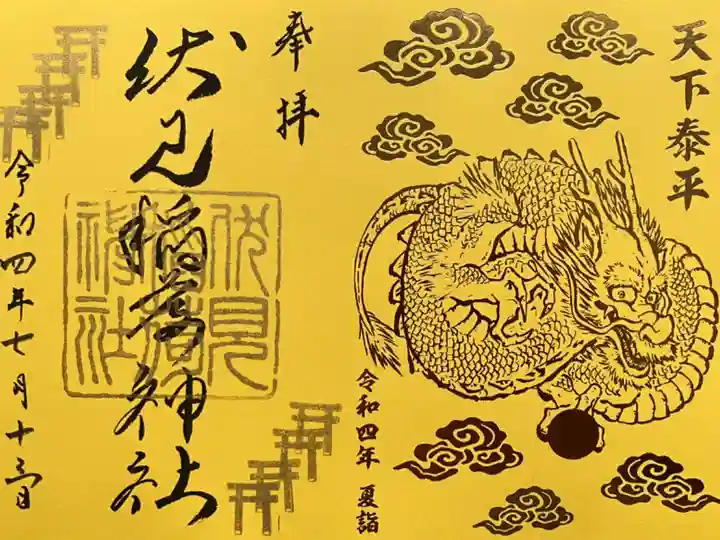 天下泰平
令和四年 夏詣
奉拝
伏見稲荷神社
伏見
稲荷
神社
令和四年七月十三日